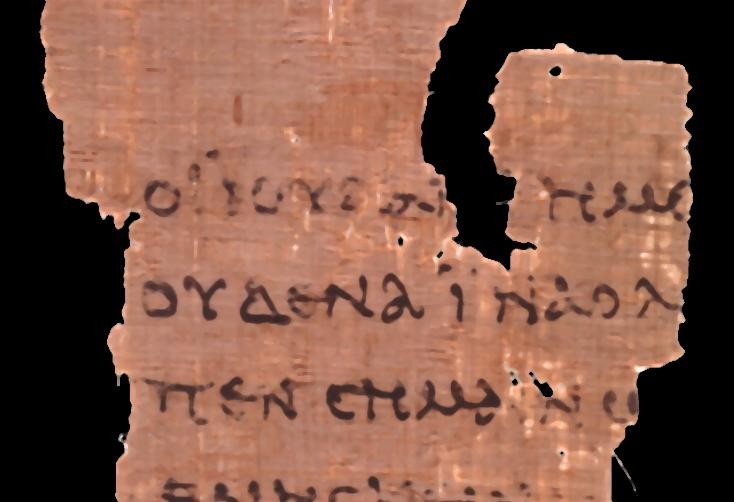 ΟΙ ΪΟΥΔΑΙ ΗΜΕ
ΟΥΔΕΝΑ ΪΝΑ Ο Λ
ΠΕΝ ϹΗΜΑΙΝΩ